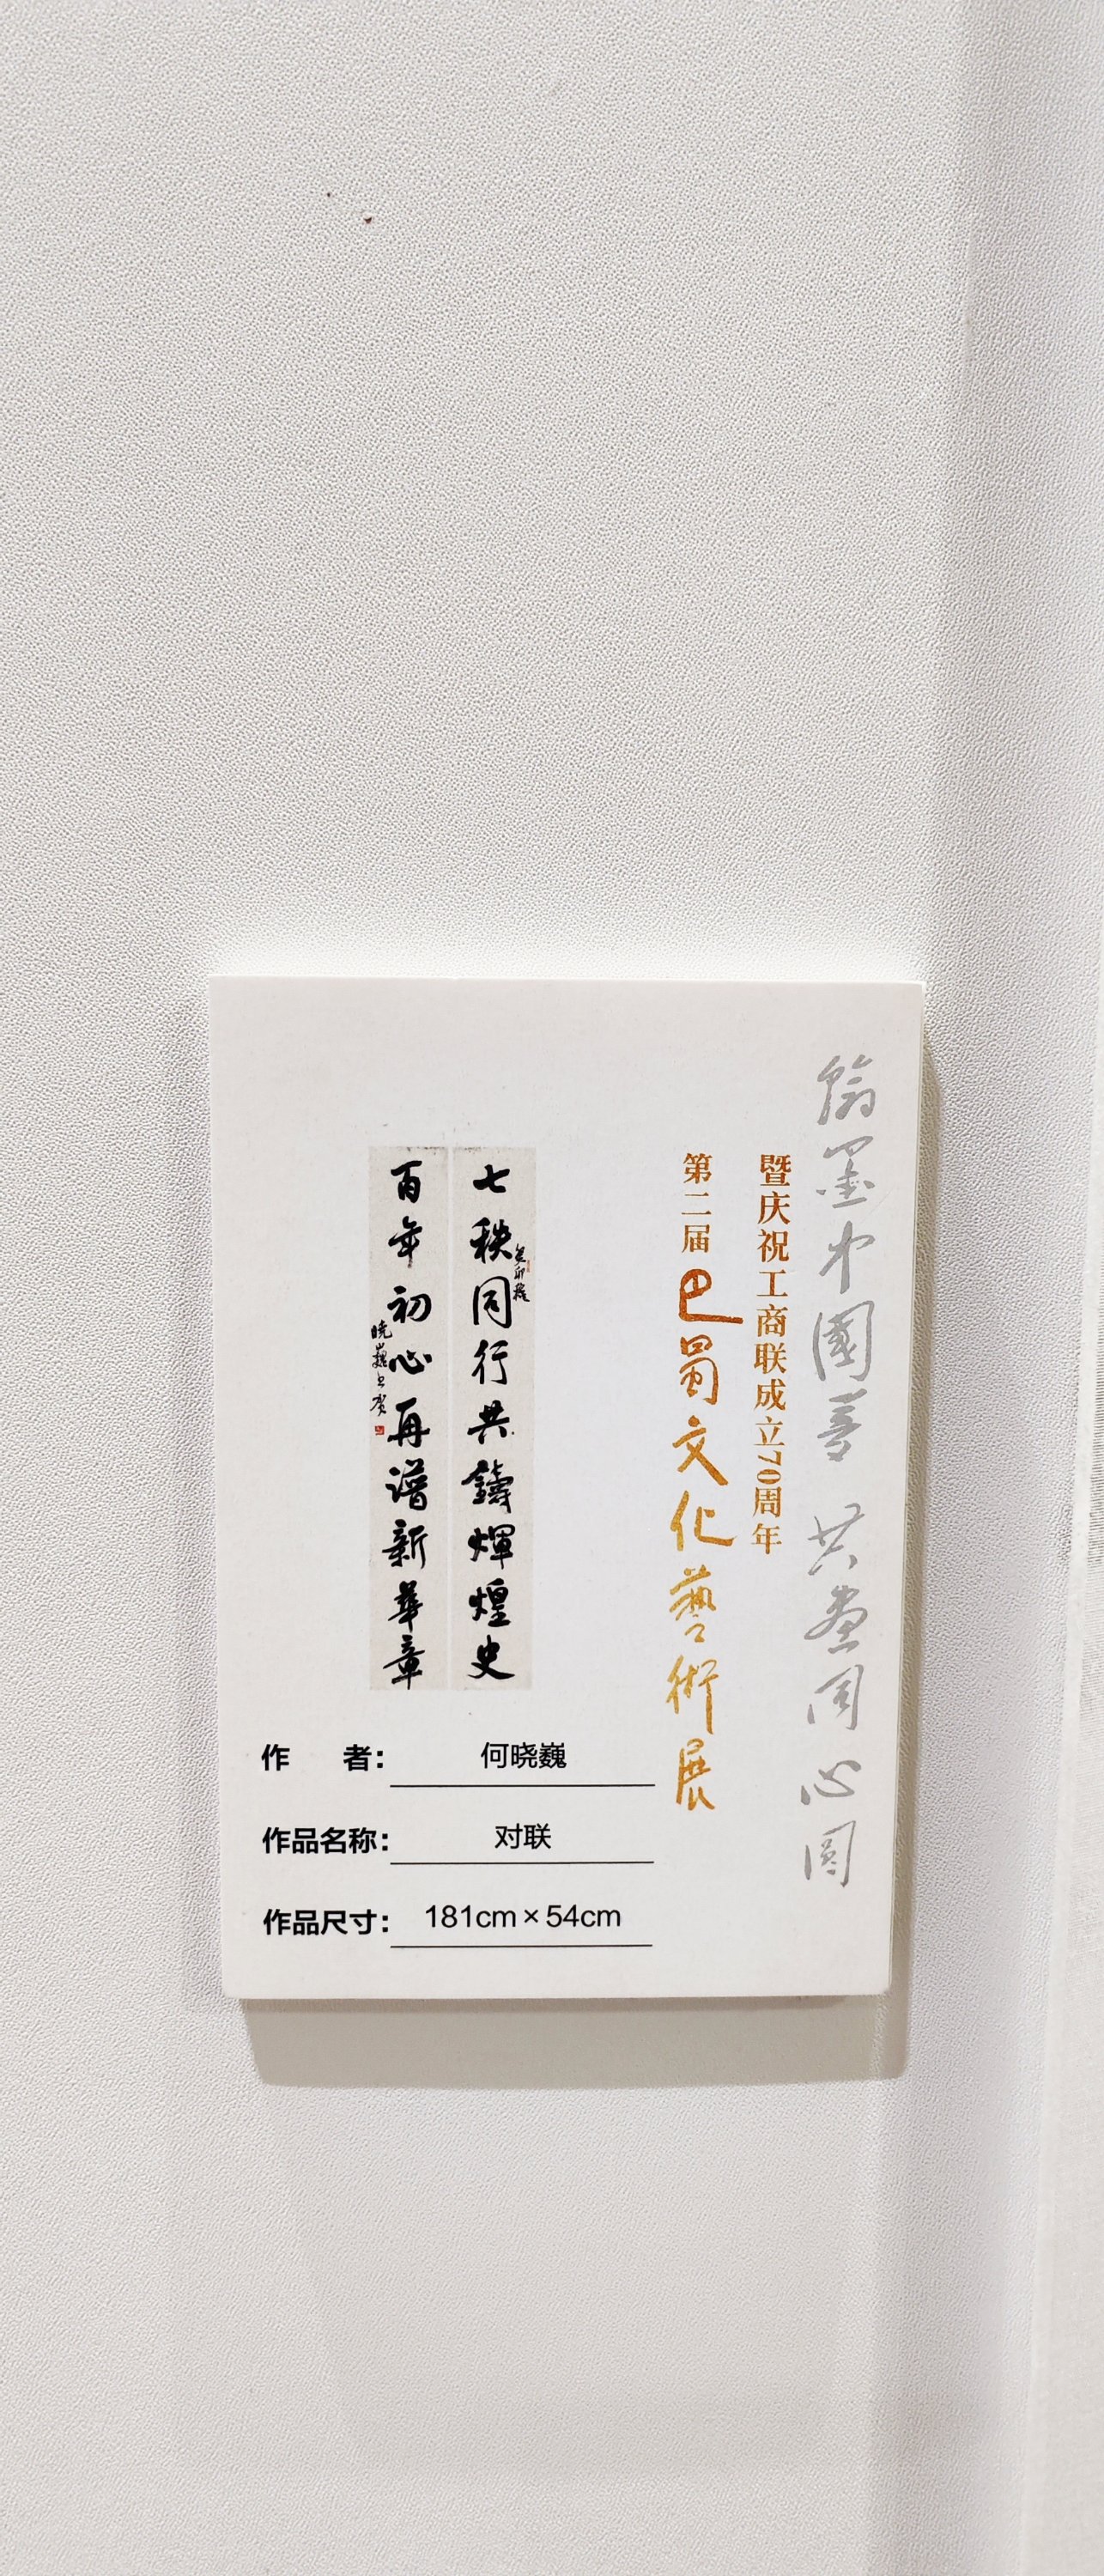 翰墨中國夢 共畫同心圓
暨庆祝工商联成立70周年
第二届巴蜀文化藝術展
七秩同行共鑄輝煌史
百年初心再譜新華章
晓巍书贺
作 者：何晓巍
作品名称：对联
作品尺寸：181cm×54cm